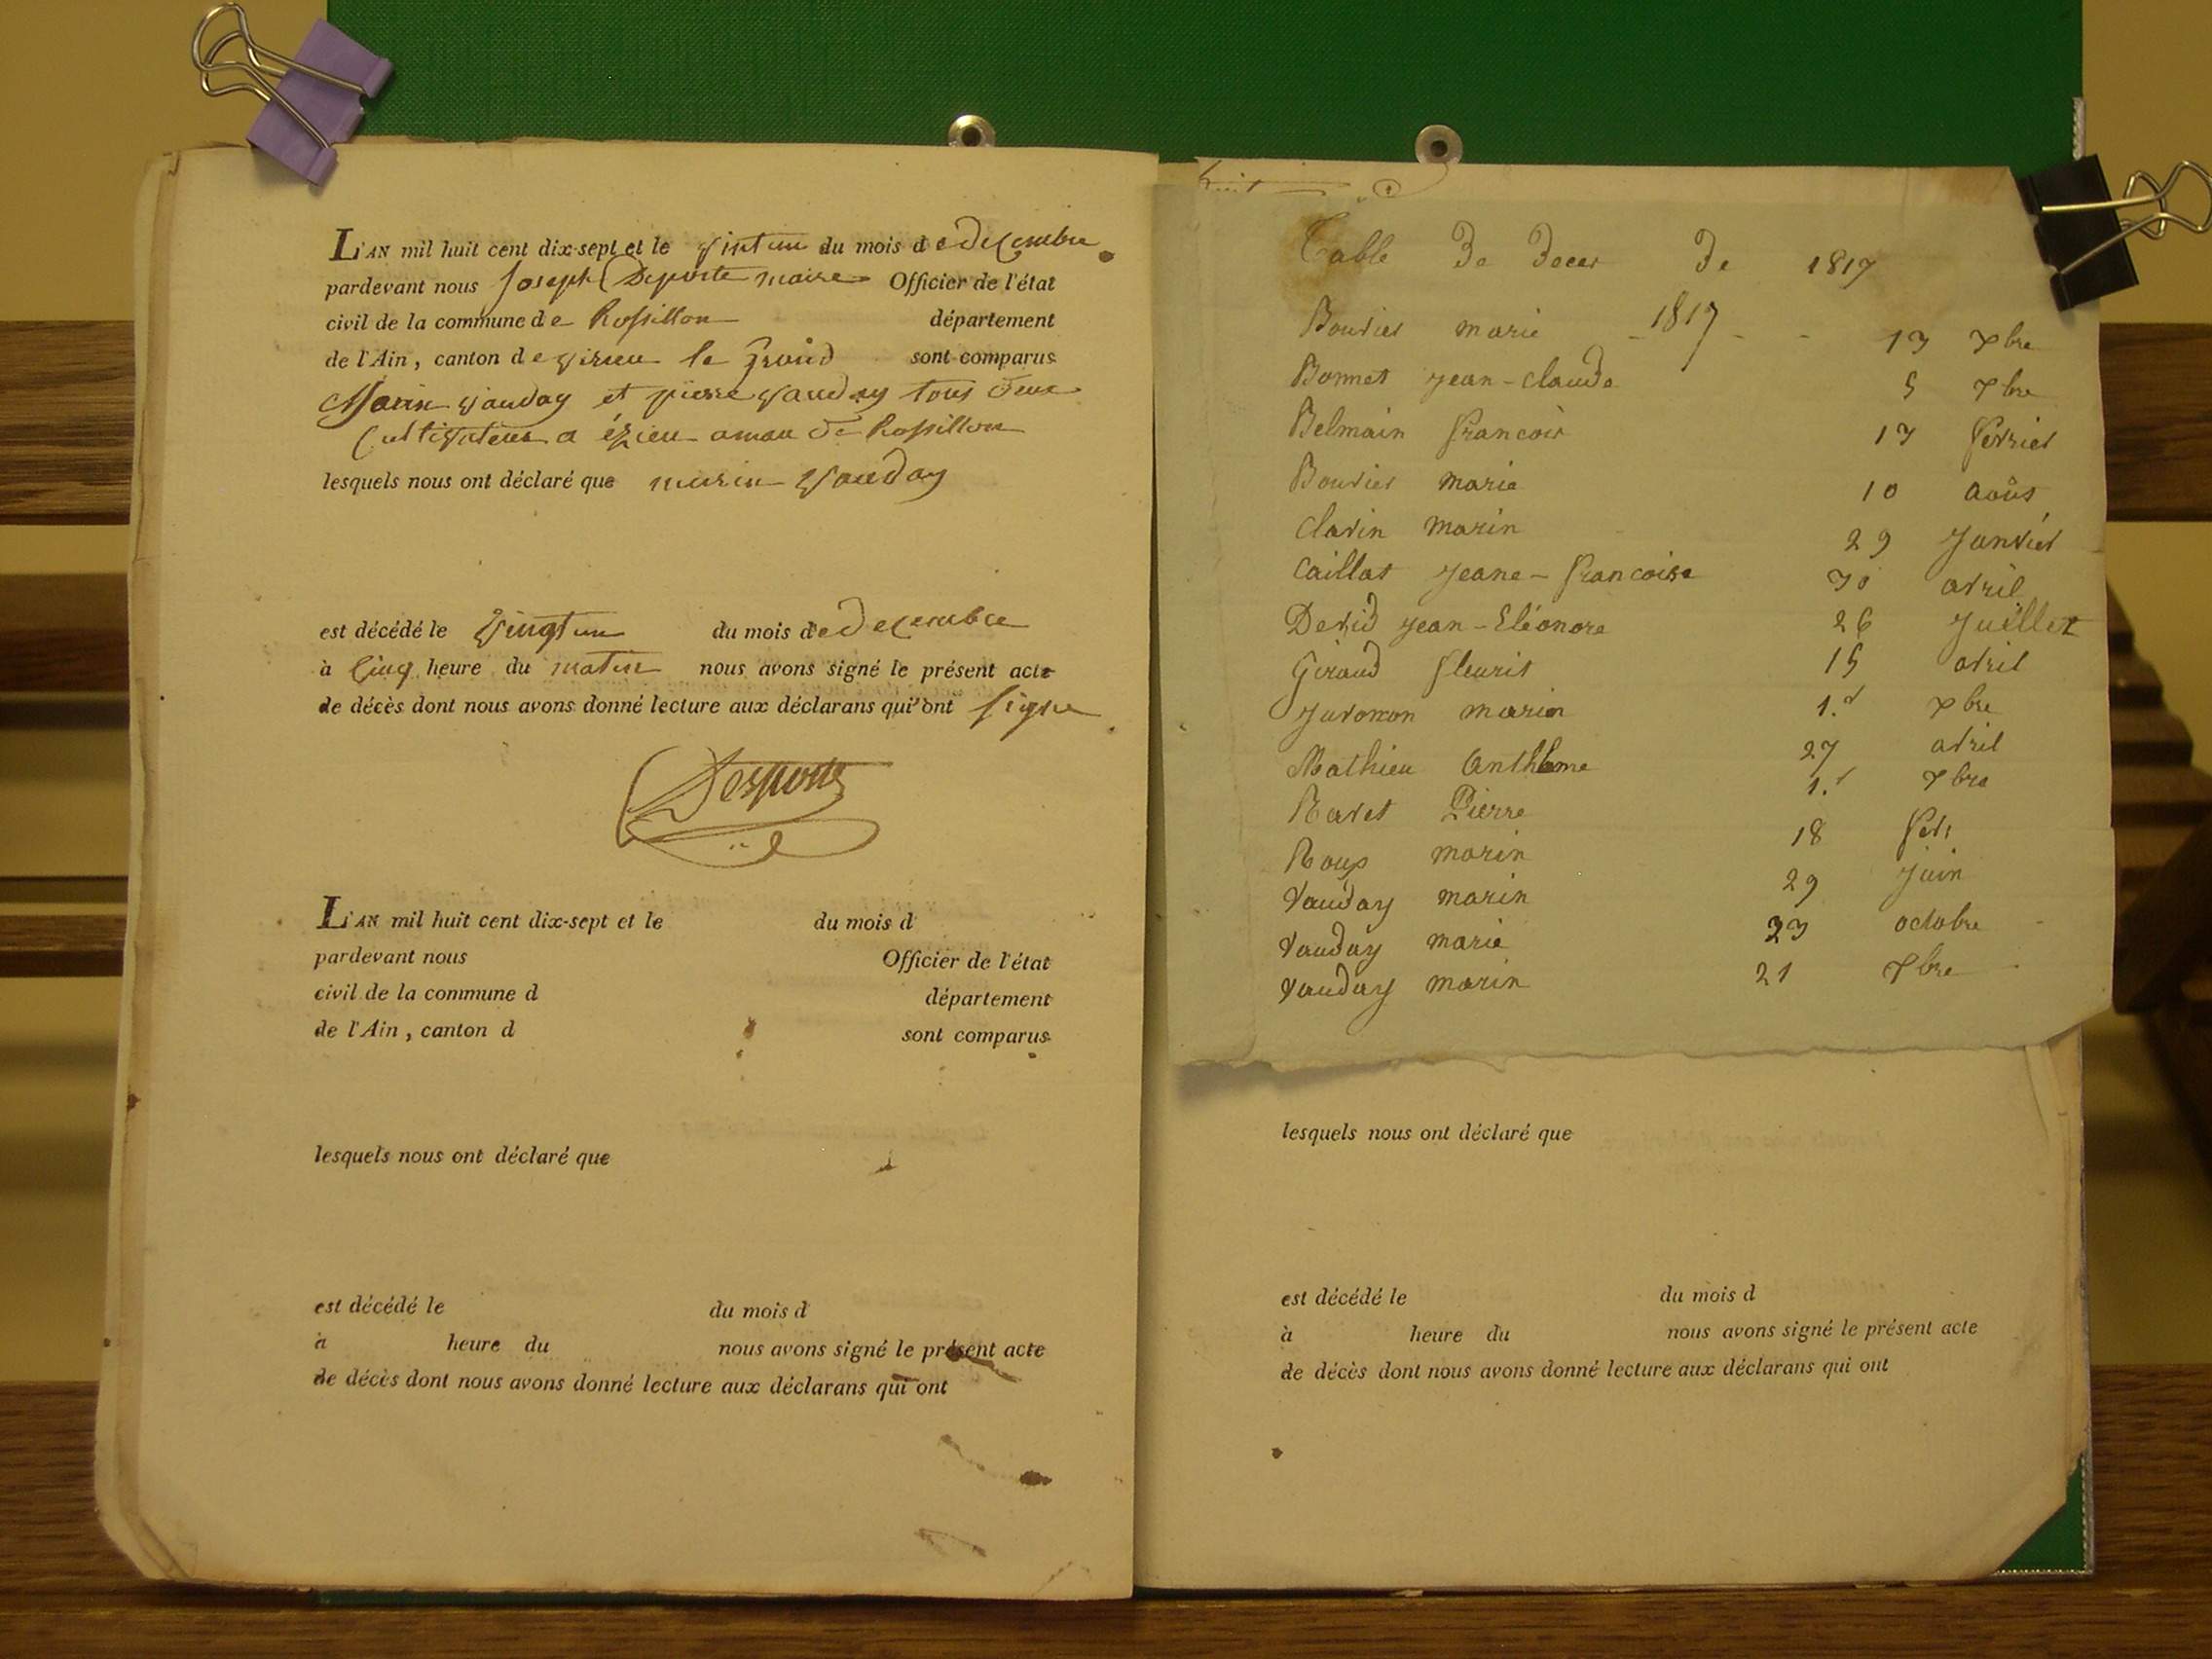 L'AN mil huit cent dix-sept et le vint un du mois de decembre
pardevant nous Joseph Deporte maire Officier de l'état
civil de la commune de Rossillon département
de l'Ain, canton de virieu le grand sont comparus
Marin vauday et pierre vauday tous deux
Cultivateur a ézieu amau de Rossillon
lesquels nous ont déclaré que marin vauday
est décédé le vingt un du mois de decembre
à cinq heure du matin nous avons signé le présent acte
de décès dont nous avons donné lecture aux déclarans qui ont signe
Desporte
L'AN mil huit cent dix-sept et le du mois d
pardevant nous Officier de l'état
civil de la commune d département
de l'Ain, canton d sont comparus
lesquels nous ont déclaré que
est décédé le du mois d
à heure du nous avons signé le présent acte
de décès dont nous avons donné lecture aux déclarans qui ont
huit
Table De Deces De 1817
Bouvier marie - 1817 - - 13 xbre
Bonnet jean-claude 5 7bre
Belmain francois 13 fevrier
Bouvier marie 10 août
clavin marin 29 janvier
Caillat jeane-francoise 30 avril
Devid jean-Eléonore 26 juillet
Giraud fleurit 15 avril
Juvomon marin 1.r xbre
Mathieu Anthlme 27 avril
Ravet Pierre 1.r 7bre
Roup marin 18 fevr
Vauday marin 29 juin
Vauday marie 23 octobre
Vauday marin 21 xbre
lesquels nous ont déclaré que
est décédé le du mois d
à heure du nous avons signé le présent acte
de décès dont nous avons donné lecture aux déclarans qui ont